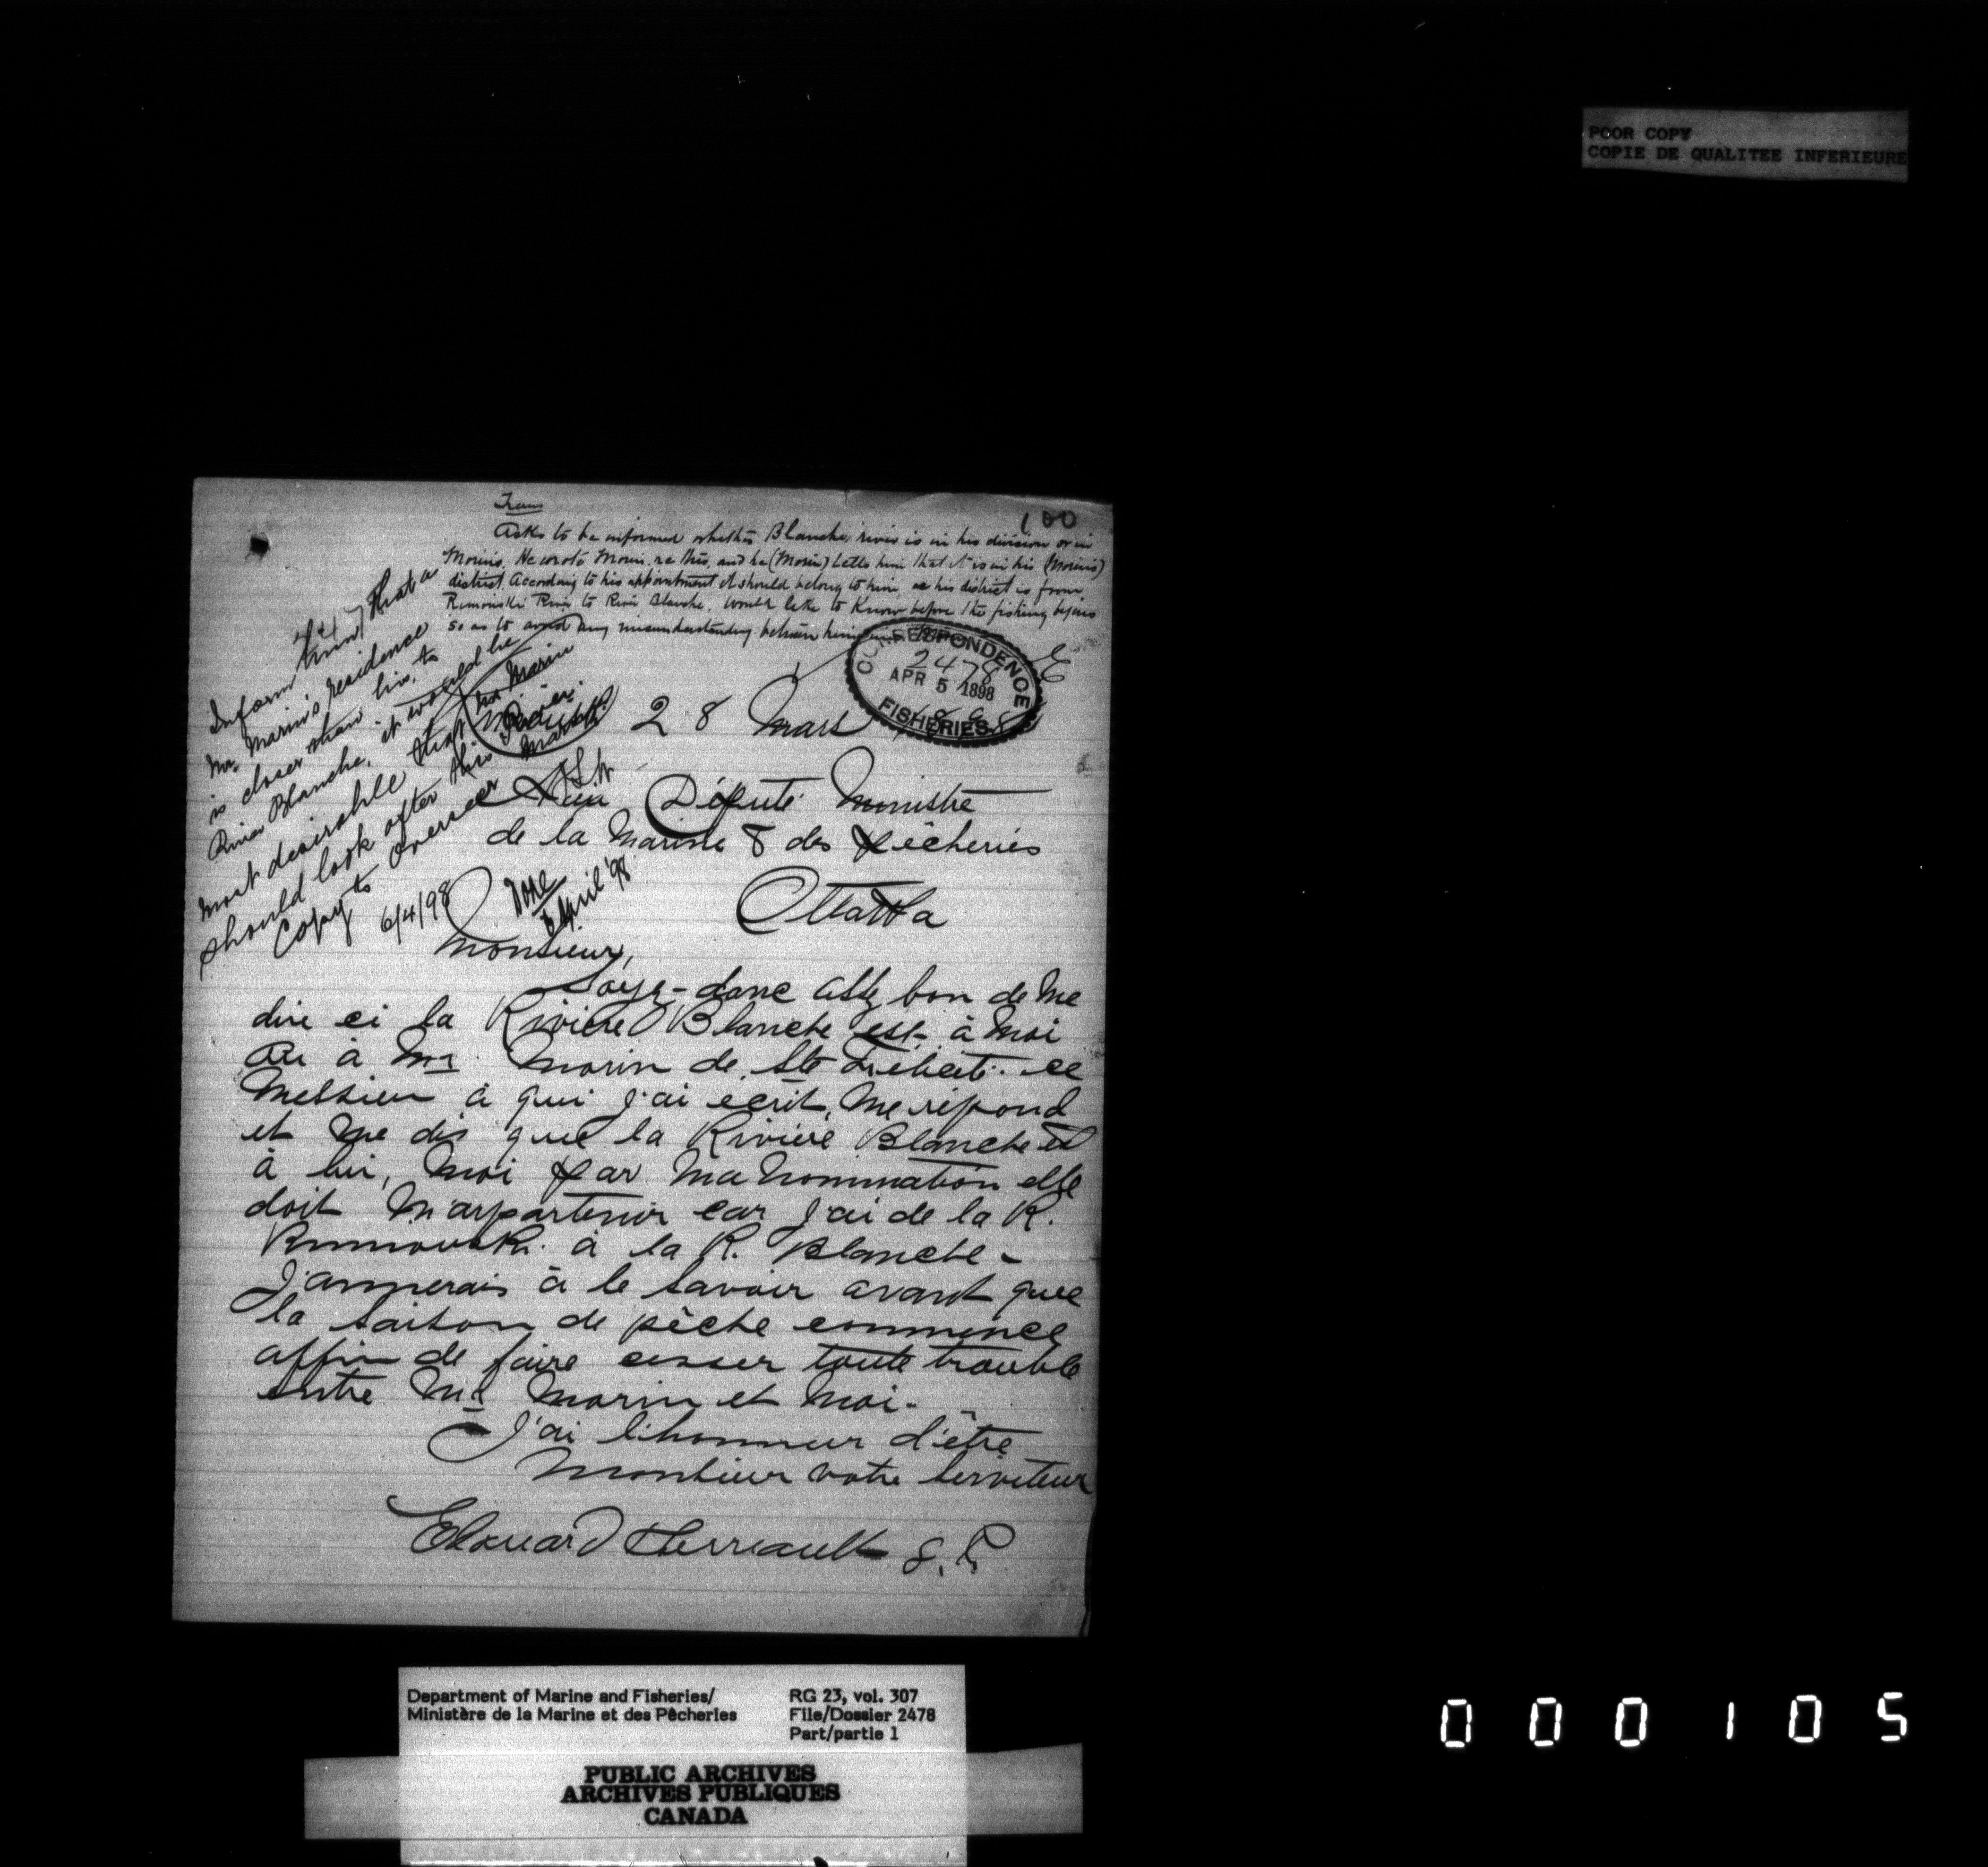 POOR COPY
COPIE DE QUALITEE INFERIEURE
100
Trans
Asks to be informed whether Blanche river is in his division or in
Morin's. He wrote Morin re this, and he (Morin) tells him that it is in his (Morin's)
district. According to his appointment it should belong to him, as his district is from
Rimouski River to River Blanche. Would like to know before the fishing begins
so as to avoid any misunderstanding between him
CORRESPONDENCE
2478
APR 5 1898
FISHERIES
Inform him that as
Mr. Marin's residence
is closer than his, to
River Blanche, it would be
most desirable that Mr Marin
should look after this River.
Copy to Overseer Marin
6/4/98
Done
6 April '98
28 Mars 1898
Député Ministre
de la Marine & des Pêcheries
Ottawa
Monsieur,
Soyez-donc assez bon de me
dire ci la Rivière Blanche est à moi
ou à Mr Morin de Ste Félicité. ce
Messieu à qui j'ai écrit, me répond
et me dis que la Rivière Blanche est
à lui, moi par ma nommination elle
doit m'arpartenir car j'ai de la R.
Rimouski à la R. Blanche -
J'aimerais à le savoir avant que
la saison de pêche commence
affin de faire cesser toute trouble
entre Mr Morin et moi.
J'ai l'honneur d'être
Monsieur votre serviteur
Edouard Therriault g. P.
Department of Marine and Fisheries/
Ministère de la Marine et des Pêcheries
RG 23, vol. 307
File/Dossier 2478
Part/partie 1
PUBLIC ARCHIVES
ARCHIVES PUBLIQUES
CANADA
000105